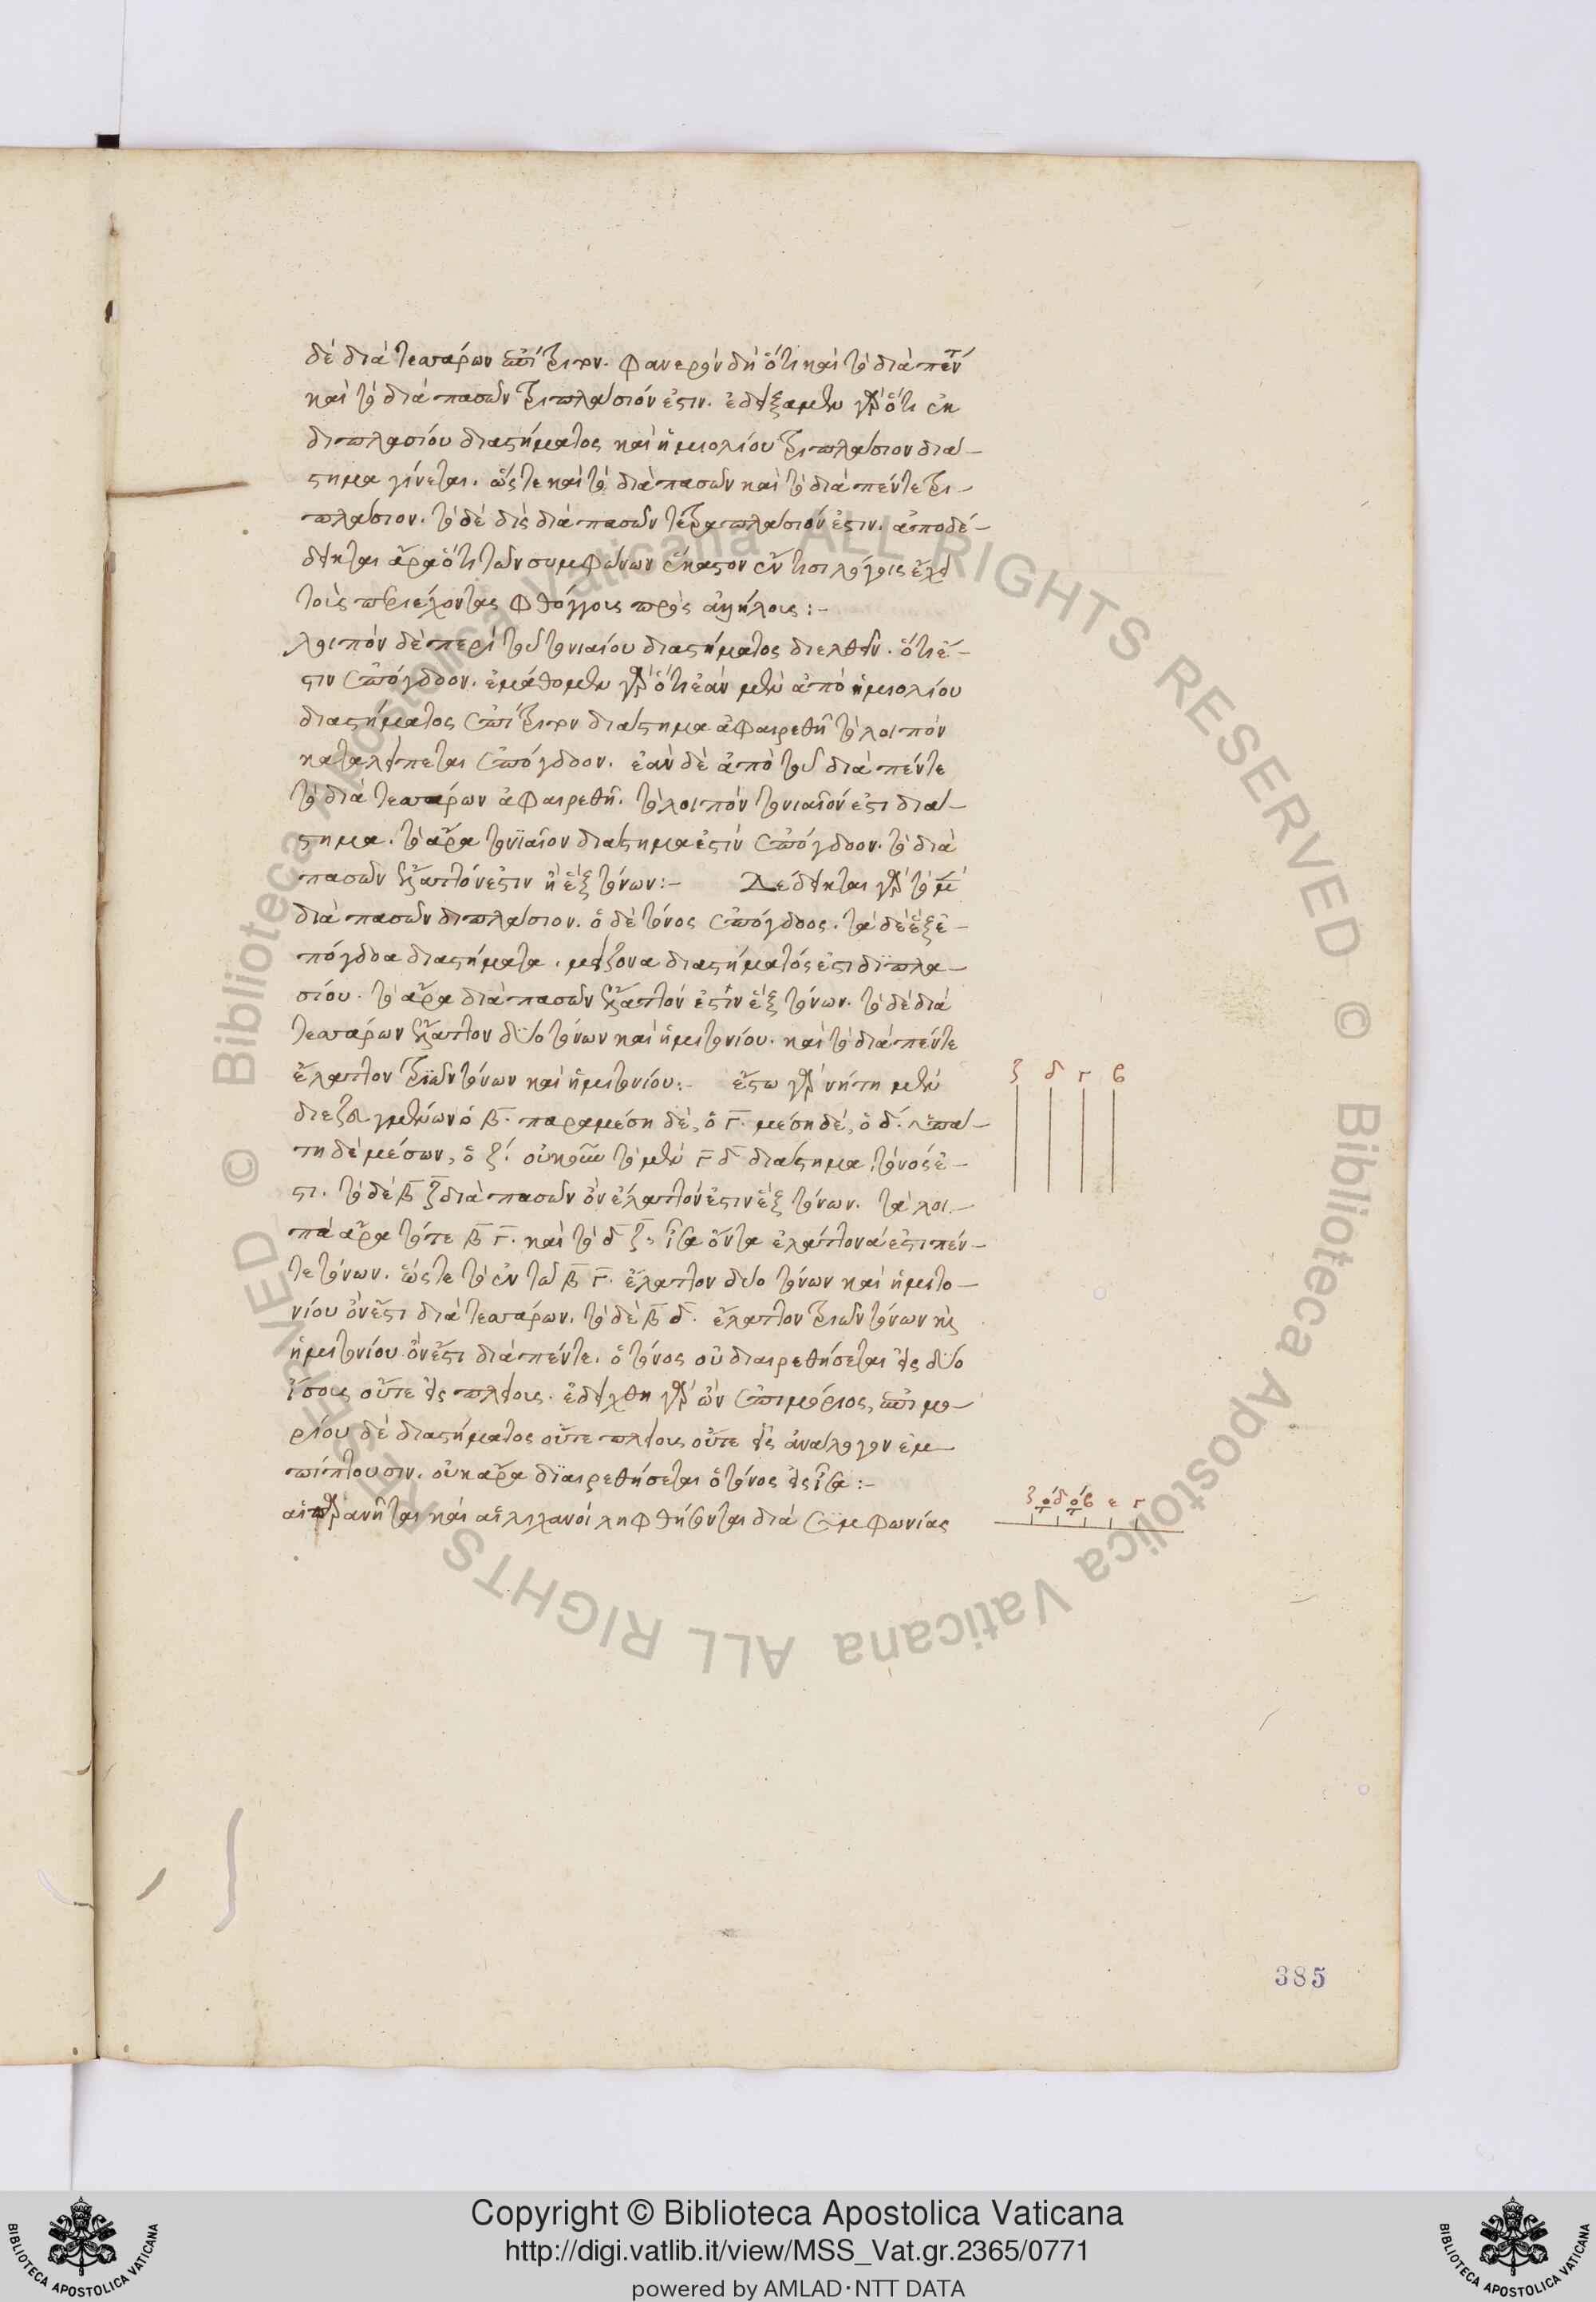 δὲ διὰ τεσσάρων ἐπίτριτον. φανερὸν δὴ ὅτι καὶ τὸ διὰ πέντ
καὶ τὸ διὰ πασῶν τριπλάσιόν ἐστιν. ἐδείξαμεν γὰρ ὅτι ἐκ
διπλασίου διαστήματος καὶ ἡμιολίου τριπλάσιον διά-
στημα γίνεται. ὥστε καὶ τὸ διὰ πασῶν καὶ τὸ διὰ πέντε τρι-
πλάσιον. τὸ δὲ δὶς διὰ πασῶν τετραπλάσιόν ἐστιν. ἀποδέ-
δεικται ἄρα ὅτι τῶν συμφώνων ἕκαστον ἔν τισι λόγοις ἔχει
τοὺς περιέχοντας φθόγγους πρὸς ἀλλήλους :-
λοιπὸν δὲ περὶ τοῦ τονιαίου διαστήματος διελθεῖν. ὅτι ἔ-
στιν ἐπόγδοον. ἐμάθομεν γὰρ ὅτι ἐὰν μὲν ἀπὸ ἡμιολίου
διαστήματος ἐπίτριτον διάστημα ἀφαιρεθῆ τὸ λοιπὸν
καταλείπεται ἐπόγδοον. ἐὰν δὲ ἀπὸ τοῦ διὰ πέντε
τὸ διὰ τεσσάρων ἀφαιρεθῆ. τὸ λοιπὸν τονιαῖόν ἐστι διά-
στημα. τὸ ἄρα τονϊαῖον διάστημα ἐστὶν ἐπόγδοον. τὸ διὰ
πασῶν ἔλαττόν ἐστιν ἢ ἓξ τόνων :- Δέδεικται γὰρ τὸ μ
διὰ πασῶν διπλάσιον. ὁ δὲ τόνος ἐπόγδοος. τὰ δὲ ἓξ ἐ-
πόγδοα διαστήματα. μείζονα διαστήματός ἐστι διπλα-
σίου. τὸ ἄρα διὰ πασῶν ἔλαττόν ἐστιν ἓξ τόνων. τὸ δὲ διὰ
τεσσάρων ἔλαττον δύο τόνων καὶ ἡμιτονίου. καὶ τὸ διὰ πέντε
ἔλαττον τριῶν τόνων καὶ ἡμιτονίου :- ἔστω γὰρ νήτη μὲν
διεζευγμένων ὁ β. παραμέση δὲ, ὁ γ. μέση δὲ, ὁ δ. ὑπά-
τη δὲ μέσων, ὁ ζ. οὐκοῦν τὸ μὲν γ δ διάστημα τόνος ἐ-
στι. τὸ δὲ β ζ διὰ πασῶν ὂν ἔλαττόν ἐστιν ἓξ τόνων. τὰ λοι-
πὰ ἄρα τό τε β γ. καὶ τὸ δ ζ, ἴσα ὄντα ἐλάττονά ἐστι πέν-
τε τόνων. ὥστε τὸ ἐν τῶ β γ. ἔλαττον δύο τόνων καὶ ἡμιτο-
νίου ὅ ἐστι διὰ τεσσάρων. τὸ δὲ β δ. ἔλαττον τριῶν τόνων κὶ
ἡμιτονίου ὅ ἐστι διὰ πέντε. ὁ τόνος οὐ διαιρεθήσεται εἰς δύο
ἴσους οὔτε εἰς πλείους. ἐδείχθη γὰρ ὢν ἐπιμόριος, ἐπιμο-
ρίου δὲ διαστήματος οὔτε πλείους οὔτε εἷς ἀνάλογον ἐμ-
πίπτουσιν. οὐκ ἄρα διαιρεθήσεται ὁ τόνος εἰς ἴσα :-
αἱ παρανῆται καὶ αἱ λιχανοὶ ληφθήσονται διὰ συμφωνίας
ζ δ γ β
385